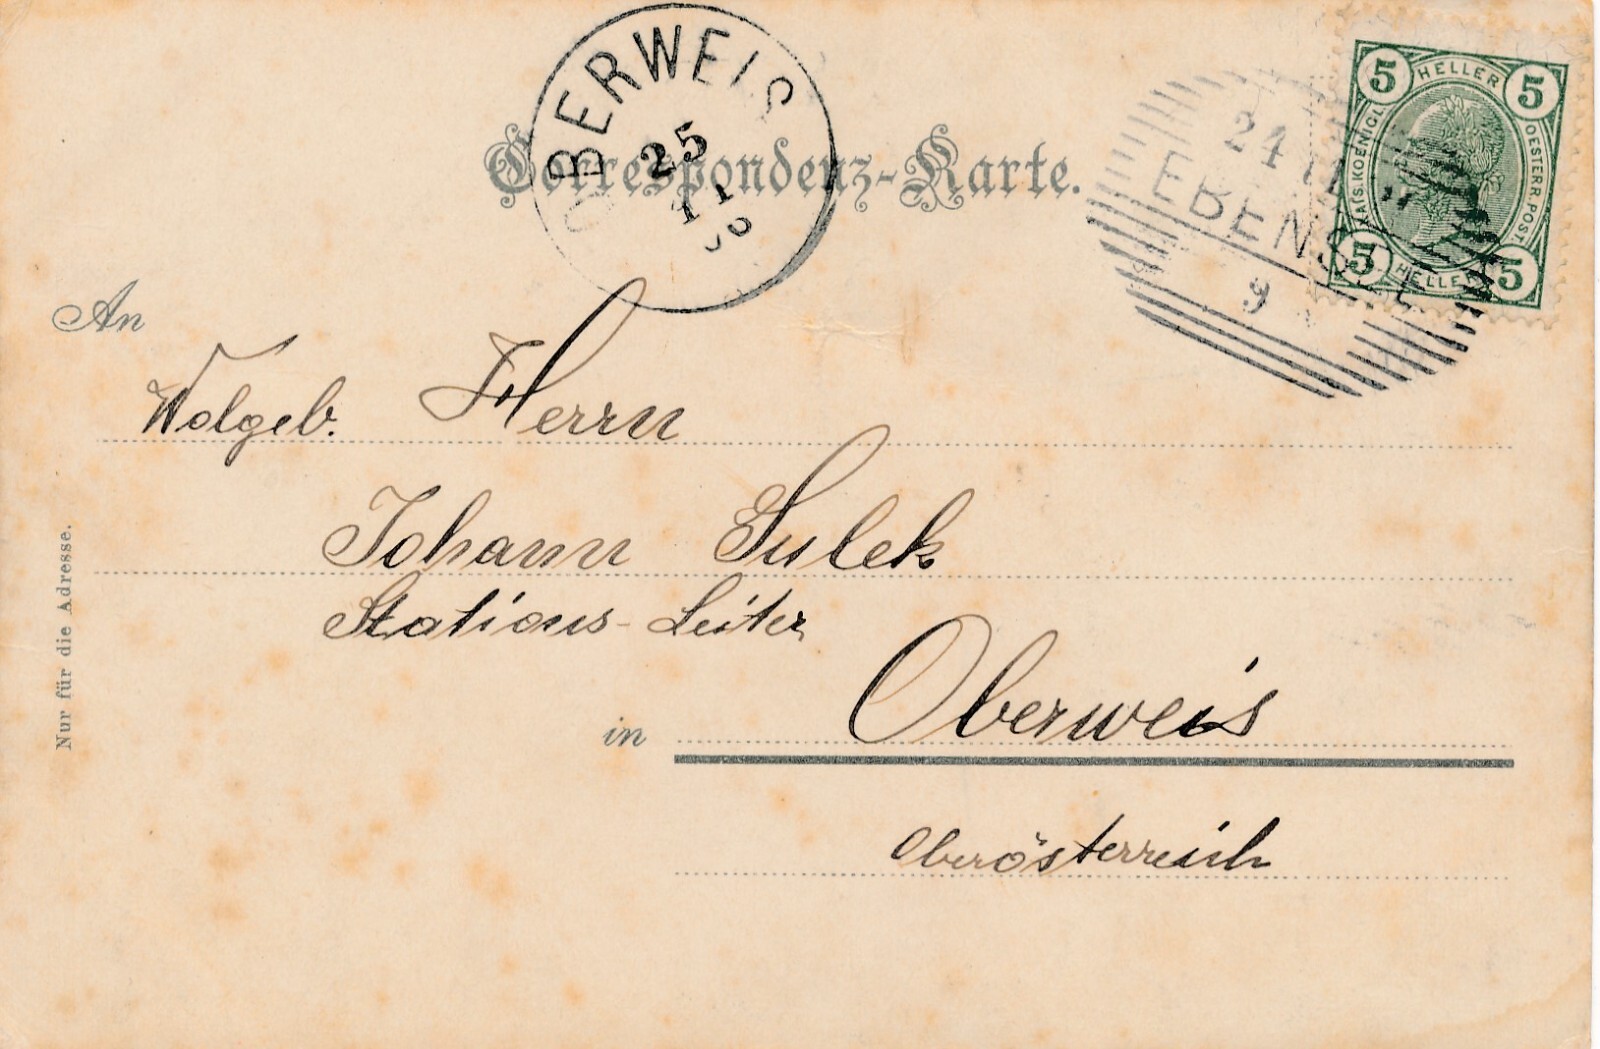 Correspondenz-Karte.
OBERWEIS
25
11
24 11
EBENSEE
9
5 HELLER 5
KAIS. KOENIGL.
OESTERR. POST.
5 HELLER 5
An
Wolgeb. Herrn
Johann Sulek
Stations-Leiter
in Oberweis
Oberösterreich
Nur für die Adresse.